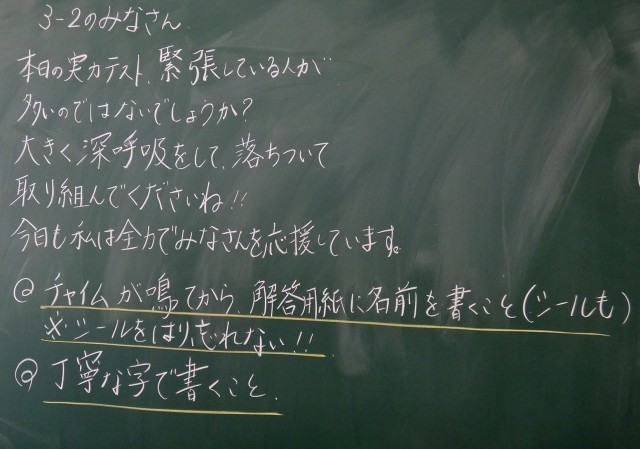 3-2のみなさん
本日の実力テスト、緊張している人が
多いのではないでしょうか?
大きく深呼吸をして、落ちついて
取り組んでくださいね!!
今日も私は全力でみなさんを応援しています。
◎ チャイムが鳴ってから、解答用紙に名前を書くこと(シールも)
※シールをはり忘れない!!
◎ 丁寧な字で書くこと.